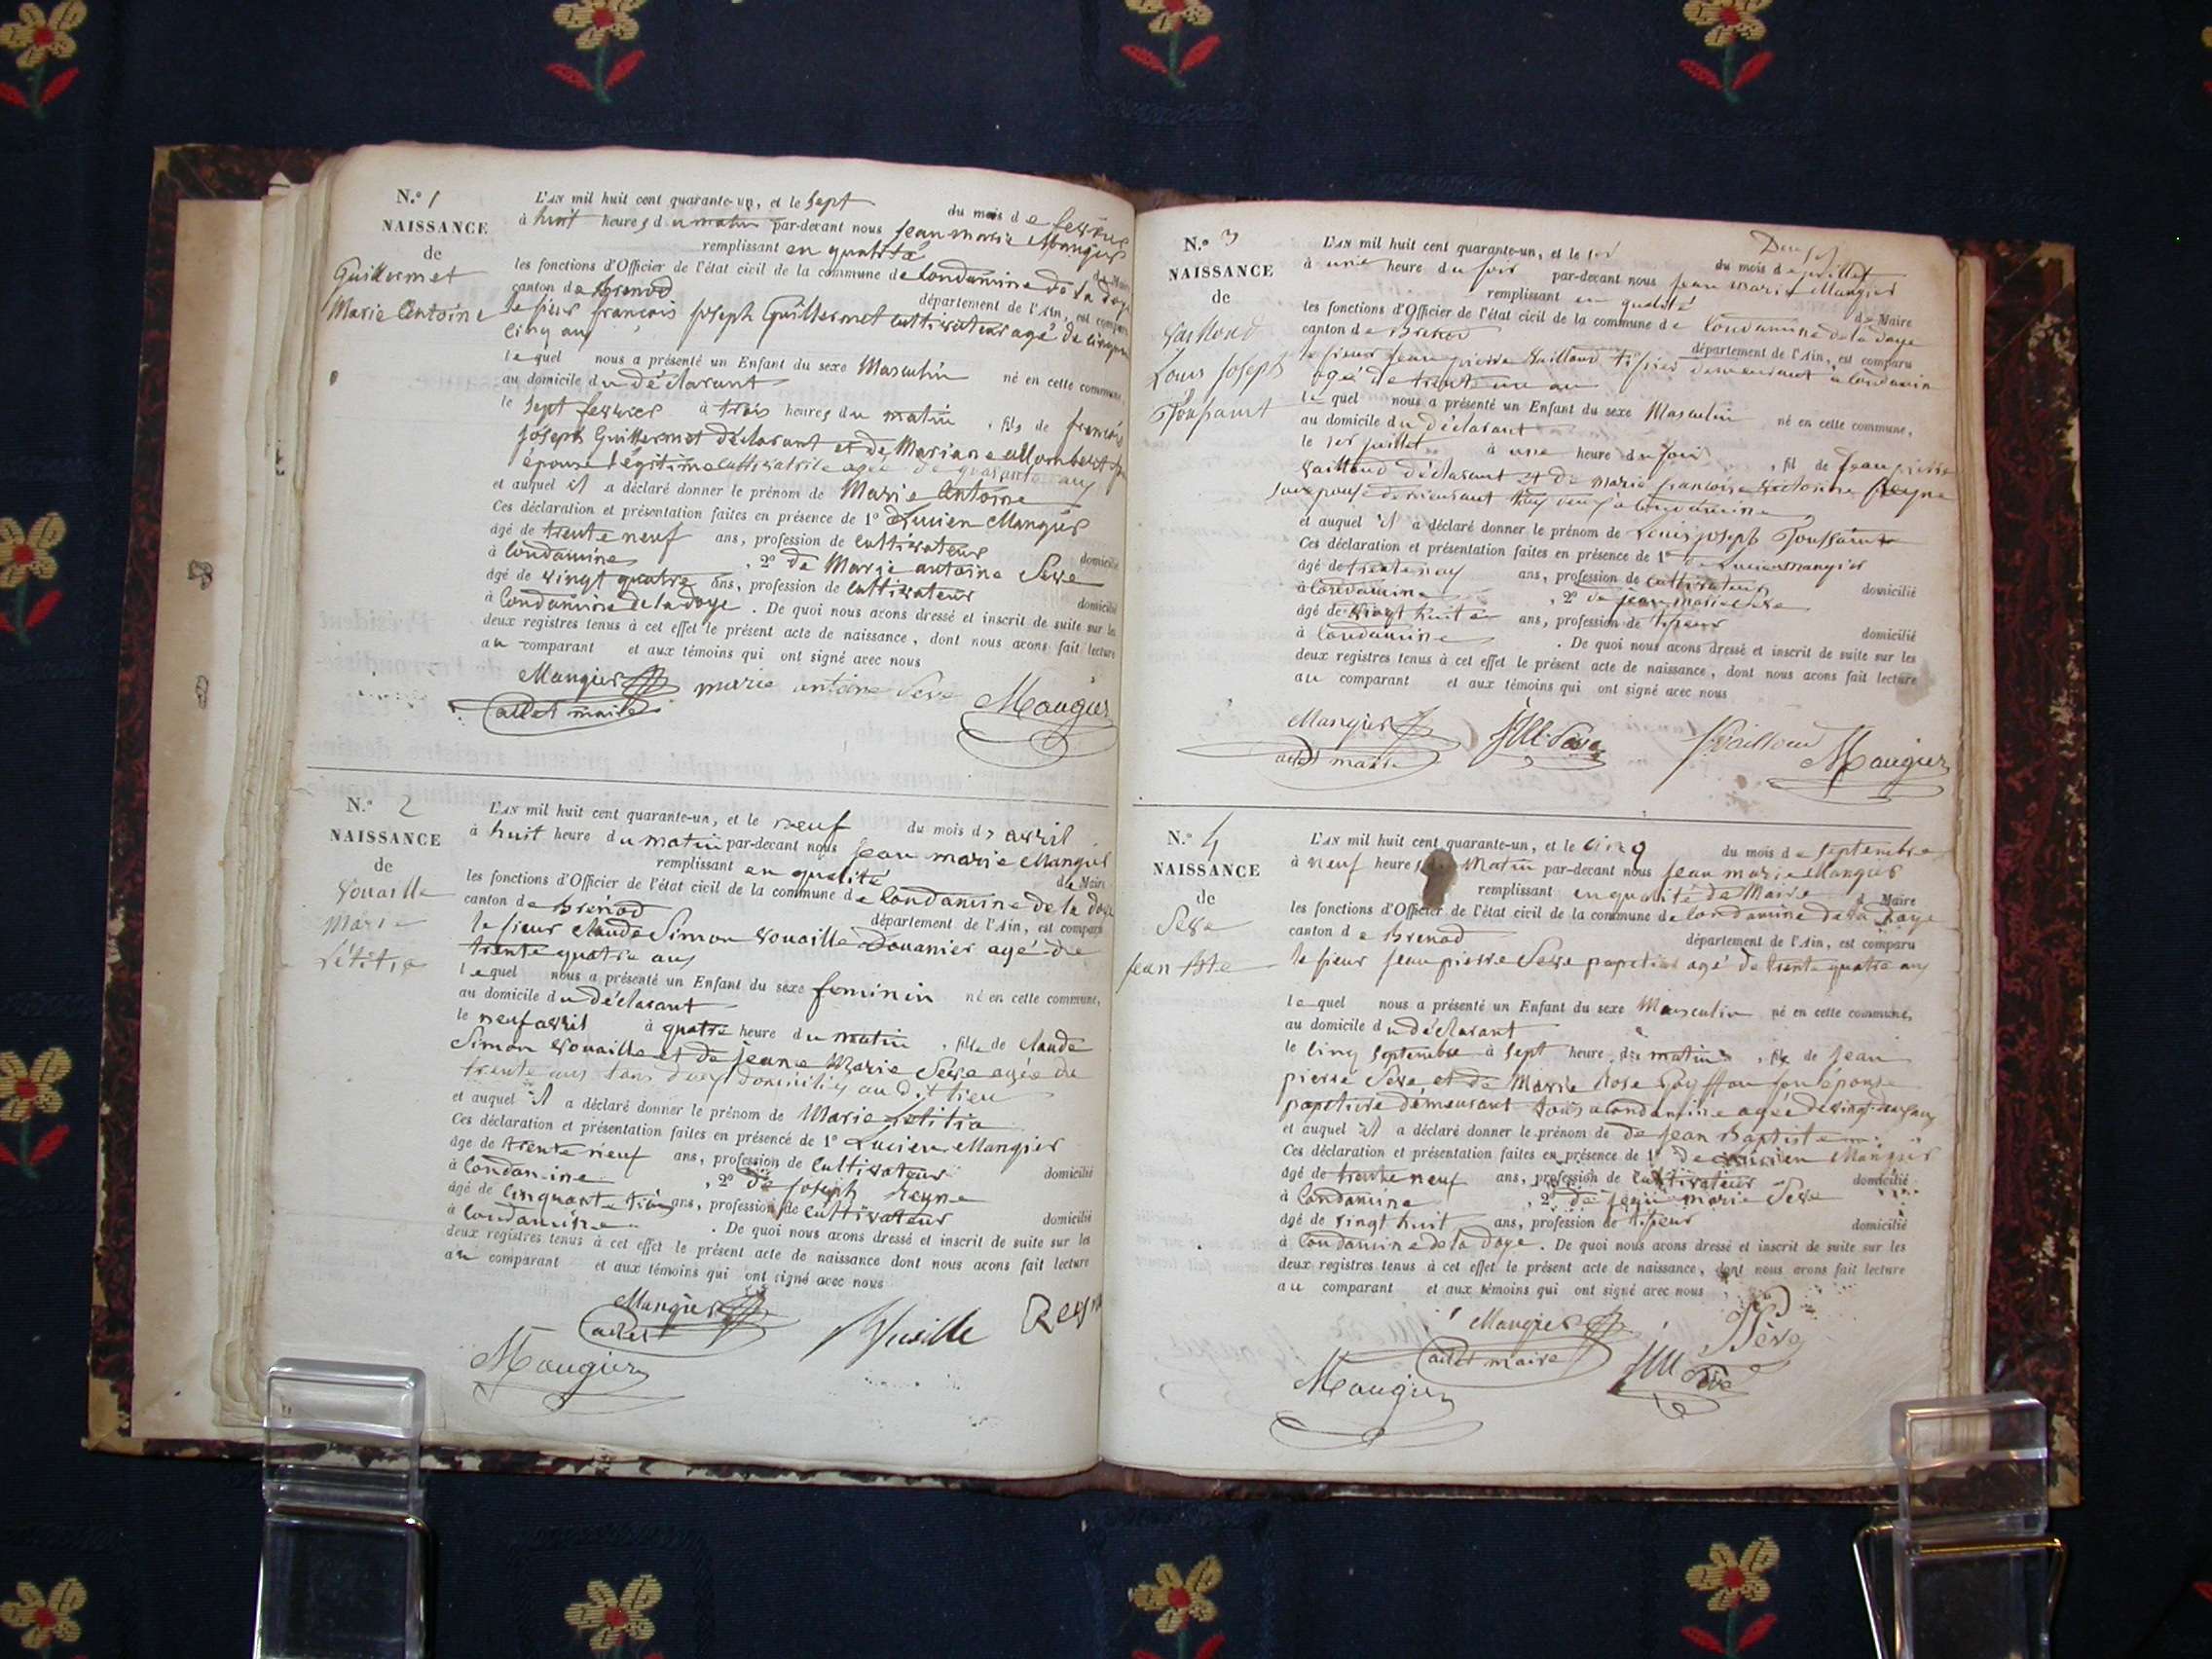 N.° 1
NAISSANCE
de
Guillermet
Marie Antoine
L'AN mil huit cent quarante-un, et le sept du mois de fevrier
à huit heures du matin par-devant nous jean marie Mangier
remplissant en qualité de Maire
les fonctions d'Officier de l'état civil de la commune de Condamine de la doye
canton de Brenod département de l'Ain, est comparu
le sieur françois joseph Guillermet cultivateur agé de cinquante
cinq ans
lequel nous a présenté un Enfant du sexe Masculin né en cette commune,
au domicile du déclarant
le sept fevrier à trois heures du matin, fils de françois
joseph Guillermet déclarant et de Mariane allombert
épouse légitime cultivatrice agée de quarante ans
et auquel il a déclaré donner le prénom de Marie Antoine
Ces déclaration et présentation faites en présence de 1° Lucien Mangier
âgé de trente neuf ans, profession de cultivateur domicilié
à Condamine, 2° de Marie antoine Seve
âgé de vingt quatre ans, profession de cultivateur domicilié
à Condamine de la doye. De quoi nous avons dressé et inscrit de suite sur les
deux registres tenus à cet effet le présent acte de naissance, dont nous avons fait lecture
au comparant et aux témoins qui ont signé avec nous
Mangier marie antoine Seve Maugier
maire
N.° 2
NAISSANCE
de
Vouaille
Marie
Létitia
L'AN mil huit cent quarante-un, et le neuf du mois d avril
à huit heure du matin par-devant nous jean marie Mangier
remplissant en qualité de Maire
les fonctions d'Officier de l'état civil de la commune de Condamine de la doye
canton de Brénod département de l'Ain, est comparu
le sieur claude Simon Vouaille Douanier agé de
trente quatre ans
lequel nous a présenté un Enfant du sexe feminin né en cette commune,
au domicile du déclarant
le neuf avril à quatre heure du matin, fille de claude
Simon Vouaille et de jeane Marie Seve agée de
trente ans tous deux domiciliés au dit lieu
et auquel il a déclaré donner le prénom de Marie Letitia
Ces déclaration et présentation faites en présence de 1° Lucien Mangier
âgé de trente neuf ans, profession de cultivateur domicilié
à Condamine, 2° de joseph Reyne
âgé de cinquante trois ans, profession de cultivateur domicilié
à Condamine. De quoi nous avons dressé et inscrit de suite sur les
deux registres tenus à cet effet le présent acte de naissance dont nous avons fait lecture
au comparant et aux témoins qui ont signé avec nous
Mangier
Maugier
N.° 3
NAISSANCE
de
Vailloud
Louis Joseph
Toussaint
L'AN mil huit cent quarante-un, et le 1er du mois de juillet
à une heure du soir par-devant nous jean marie Mangier
remplissant en qualité de Maire
les fonctions d'Officier de l'état civil de la commune de Condamine de la doye
canton de Brenod département de l'Ain, est comparu
le sieur jean pierre Vailloud tissier demeurant à Condamine
agé de trente un an
lequel nous a présenté un Enfant du sexe Masculin né en cette commune,
au domicile du déclarant
le 1er juillet à une heure du soir, fil de jean pierre
Vailloud déclarant et de Marie françoise Reyne
demeurant à Condamine
et auquel il a déclaré donner le prénom de Louis joseph Toussaint
Ces déclaration et présentation faites en présence de 1° de Lucien Mangier
âgé de trente neuf ans, profession de cultivateur domicilié
à Condamine, 2° de jean marie Seve
âgé de vingt huit ans, profession de tisseur domicilié
à Condamine. De quoi nous avons dressé et inscrit de suite sur les
deux registres tenus à cet effet le présent acte de naissance, dont nous avons fait lecture
au comparant et aux témoins qui ont signé avec nous
Mangier JM Seve Vailloud Maugier
maire
N.° 4
NAISSANCE
de
Seve
jean Bte
L'AN mil huit cent quarante-un, et le cinq du mois de septembre
à neuf heures du Matin par-devant nous jean marie Mangier
remplissant en qualité de Maire d Maire
les fonctions d'Officier de l'état civil de la commune de Condamine de la Doye
canton de Brenod département de l'Ain, est comparu
le sieur jean pierre Seve papetier agé de trente quatre ans
lequel nous a présenté un Enfant du sexe Masculin né en cette commune,
au domicile du déclarant
le cinq septembre à sept heure du matin, fils de jean
pierre Seve et de Marie Rose Goyffon son épouse
papetiere demeurant tous a Condamine agée de vingt-deux ans
et auquel il a déclaré donner le prénom de de jean Baptiste
Ces déclaration et présentation faites en présence de 1° de Lucien Mangier
âgé de trente neuf ans, profession de cultivateur domicilié
à Condamine, 2° de jean marie Seve
âgé de vingt huit ans, profession de tisseur domicilié
à Condamine de la doye. De quoi nous avons dressé et inscrit de suite sur les
deux registres tenus à cet effet le présent acte de naissance, dont nous avons fait lecture
au comparant et aux témoins qui ont signé avec nous
Mangier Sève
maire
Maugier